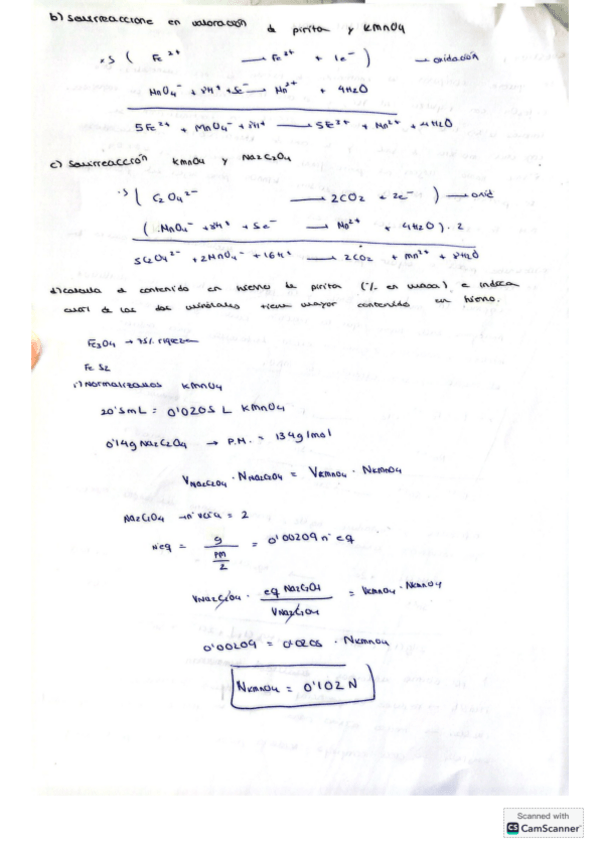 b) semirreaccione en valoración de pirita y KMnO4
x5 ( Fe 2+ → Fe 3+ + 1e- ) → oxidación
MnO4- + 8H+ + 5e- → Mn2+ + 4H2O
5Fe2+ + MnO4- + 8H+ → 5F3+ + Mn2+ + 4H2O
c) semirreacción KMnO4 y Na2C2O4
·5 ( C2O4 2- → 2CO2 + 2e- ) → oxid
( MnO4- + 8H+ + 5e- → Mn2+ + 4H2O ) · 2
5C2O4 2- + 2MnO4- + 16H+ → 2CO2 + Mn2+ + 8H2O
d) calcula el contenido en hierro de pirita (% en masa) e indica
cual de los dos minerales tiene mayor contenido en hierro.
Fe3O4 → 75% riqueza
Fe S2
Normalizamos KMnO4
20'5mL = 0'0205 L KMnO4
0'14g Na2C2O4 → P.M. = 134g/mol
V Na2C2O4 · N Na2C2O4 = V KMnO4 · N KMnO4
Na2C2O4 → nº = 2
neq = g / PM/2 = 0'00209 nº eq
V Na2C2O4 · eq Na2C2O4 / V Na2C2O4 = V KMnO4 · N KMnO4
0'00209 = 0'0205 · N KMnO4
N KMnO4 = 0'102 N
Scanned with
CS CamScanner